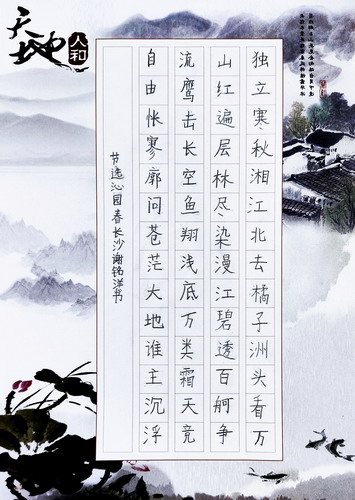 天地
人和
独立寒秋湘江北去橘子洲头看万
山红遍层林尽染漫江碧透百舸争
流鹰击长空鱼翔浅底万类霜天竞
自由怅寥廓问苍茫大地谁主沉浮
节选沁园春长沙谢铭洋书